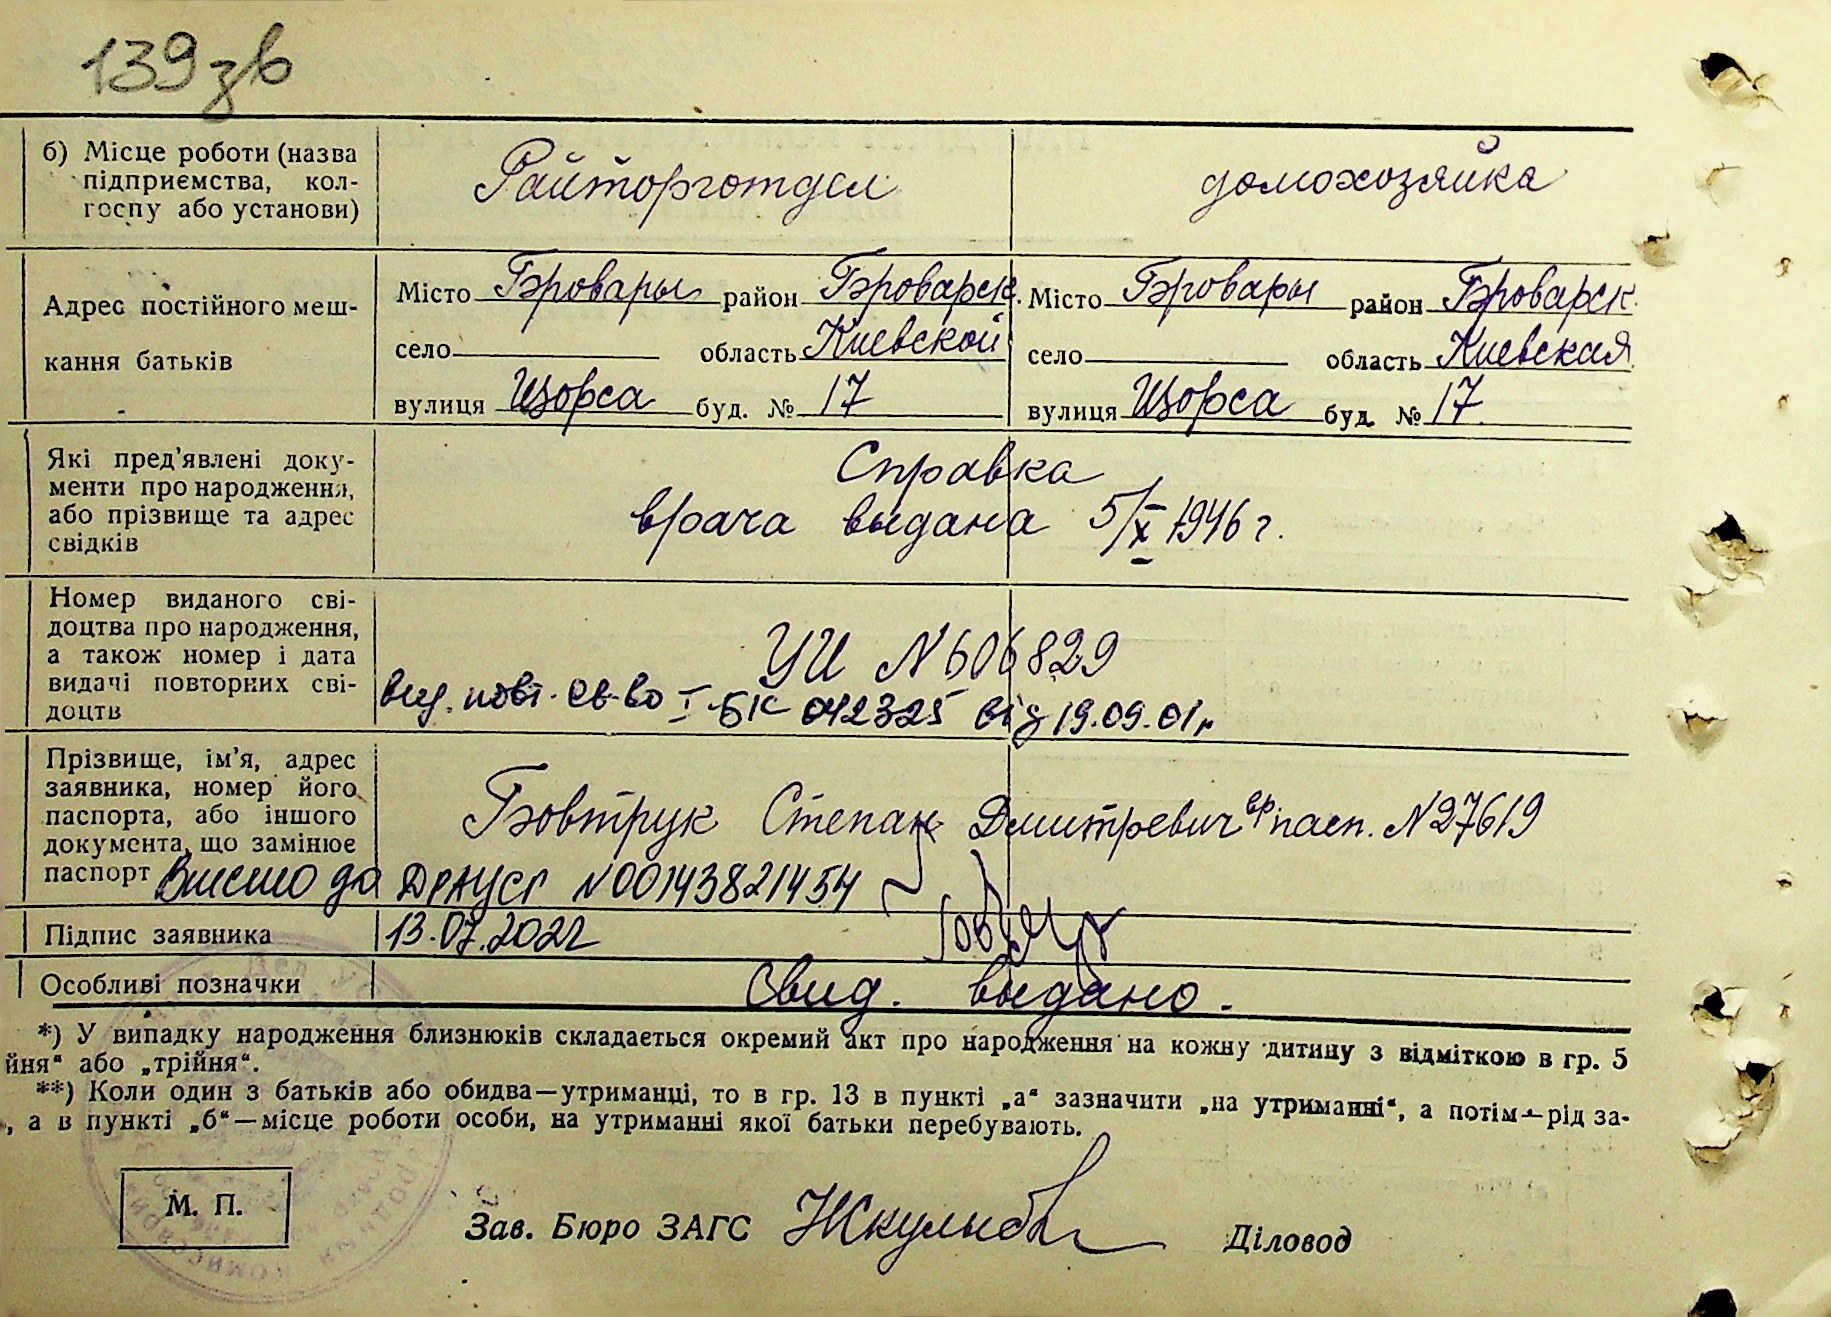 139 зв
б) Місце роботи (назва підприємства, колгоспу або установи)
Райторготдел
домохозяйка
Адрес постійного мешкання батьків
Місто Бровары район Броварск.
село область Киевской
вулиця Щорса буд. № 17
Місто Бровары район Броварск.
село область Киевская
вулиця Щорса буд. № 17.
Які пред'явлені документи про народження, або прізвище та адрес свідків
Справка
врача выдана 5/X 1946 г.
Номер виданого свідоцтва про народження, а також номер і дата видачі повторних свідоцтв
УИ N 606829
вид. повт. св-во I-БК 042325 від 19.09.01р
Прізвище, ім'я, адрес заявника, номер його паспорта, або іншого документа, що замінює паспорт
Бовтрук Степан Дмитревич вр. пасп. N 27619
Внесено до ДРАЦСГ N00143821454
Підпис заявника
13.07.2022
Особливі позначки
Свид. выдано.
*) У випадку народження близнюків складається окремий акт про народження на кожну дитину з відміткою в гр. 5
йня" або „трійня".
**) Коли один з батьків або обидва—утриманці, то в гр. 13 в пункті „а" зазначити „на утриманні", а потім—рід за-
, а в пункті „б"—місце роботи особи, на утриманні якої батьки перебувають.
М. П.
Зав. Бюро ЗАГС
Діловод